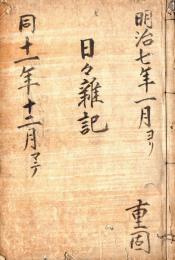 明治七年一月ヨリ
日々雜記
同十一年十二月マテ
重固